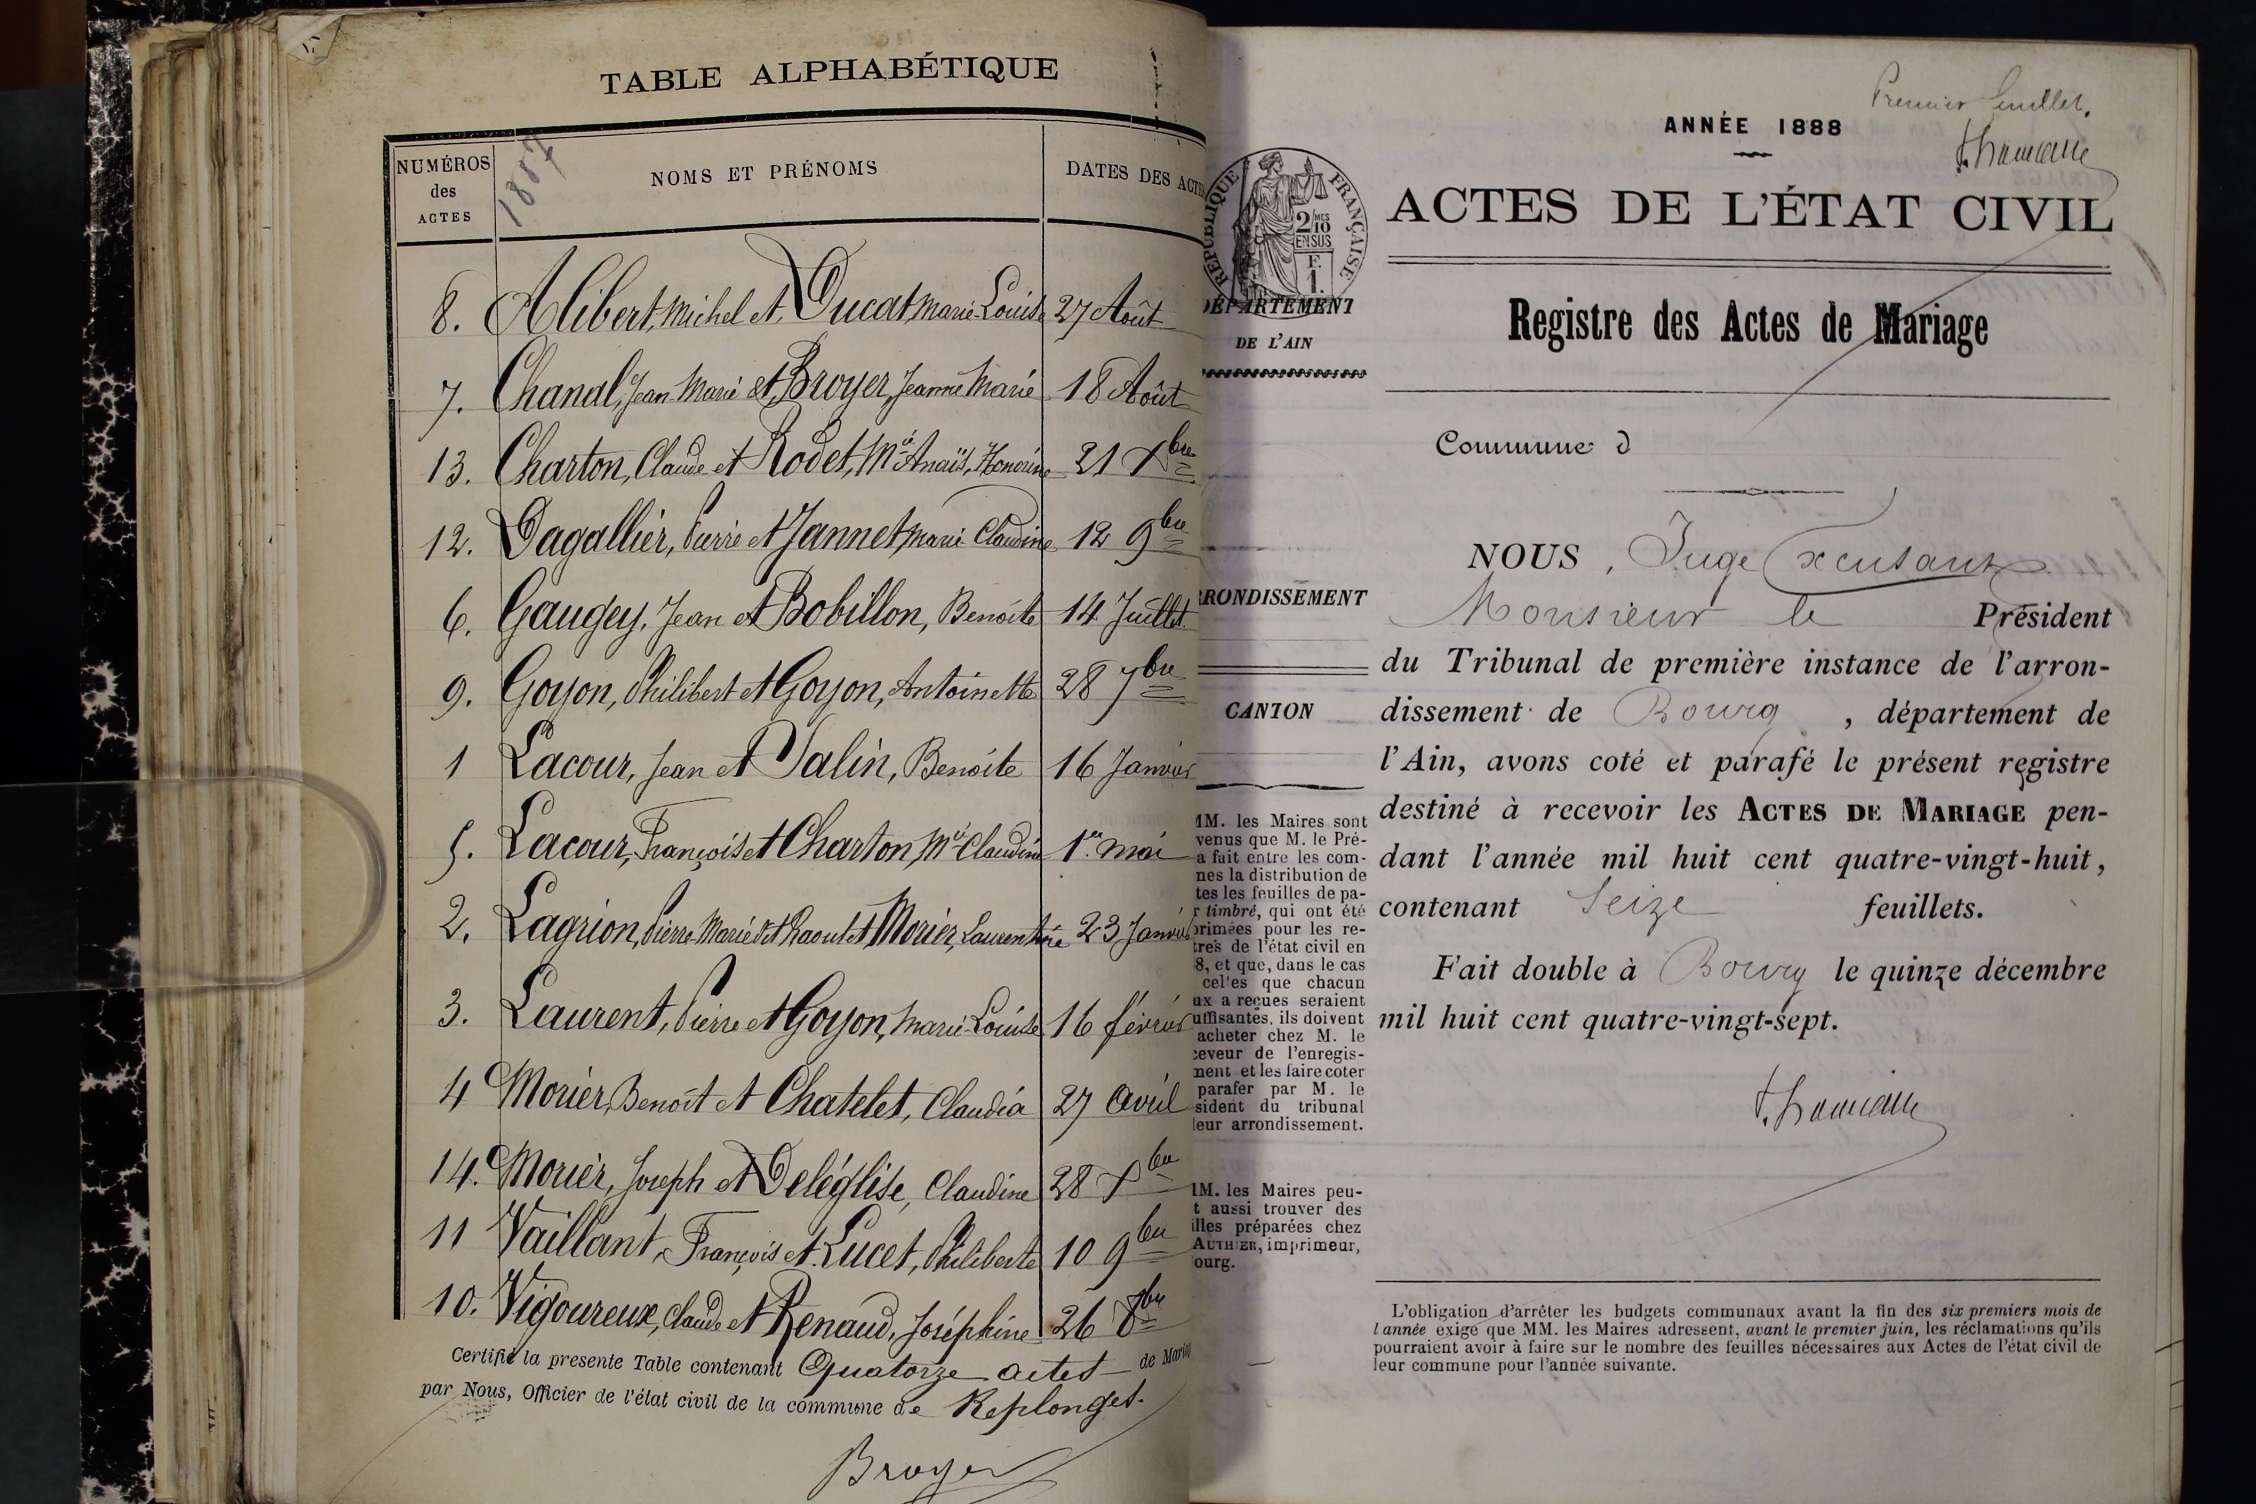 TABLE ALPHABÉTIQUE
NUMÉROS des ACTES
1887
NOMS ET PRÉNOMS
DATES DES ACTES
8. Alibert, Michel et Ducat, Marie-Louise 27 Août
7. Chanal, Jean Marie et Broyer, Jeanne Marie 18 Août
13. Charton, Claude et Rodet, Mie Anaïs, Honorine 21 Xbre
12. Dagallier, Pierre et Jannet, Marie Claudine 12 9bre
6. Gaugey, Jean et Bobillon, Benoîte 14 Juillet
9. Goyon, Philibert et Goyon, Antoinette 28 7bre
1 Lacour, Jean et Salin, Benoîte 16 Janvier
5. Lacour, François et Charton, Mie Claudine 1er mai
2. Lagrion, Pierre Marie dit Raoul et Morier, Laurentine 23 Janvier
3. Laurent, Pierre et Goyon, Marie-Louise 16 février
4 Morier, Benoît et Chatelet, Claudia 27 avril
14. Morier, Joseph et Deléglise, Claudine 28 Xbre
11 Vaillant, François et Lucet, Philiberte 10 9bre
10. Vigoureux, Claude et Renaud, Joséphine 26 8bre
Certifié la presente Table contenant Quatorze actes de Maria
par Nous, Officier de l'état civil de la commune de Replonges.
Broyer
Premier feuillet.
ANNÉE 1888
RÉPUBLIQUE FRANÇAISE
2/10 MES
EN SUS
F.
1.
ACTES DE L'ÉTAT CIVIL
DÉPARTEMENT
DE L'AIN
Registre des Actes de Mariage
Commune d
RRONDISSEMENT
CANTON
NOUS, Juge excusant
Monsieur le Président
du Tribunal de première instance de l'arron-
dissement de Bourg, département de
l'Ain, avons coté et parafé le présent registre
destiné à recevoir les ACTES DE MARIAGE pen-
dant l'année mil huit cent quatre-vingt-huit,
contenant Seize feuillets.
Fait double à Bourg le quinze décembre
mil huit cent quatre-vingt-sept.
MM. les Maires sont
venus que M. le Pré-
a fait entre les com-
nes la distribution de
tes les feuilles de pa-
r timbré, qui ont été
primées pour les re-
tres de l'état civil en
8, et que, dans le cas
celles que chacun
ux a reçues seraient
uffisantes, ils doivent
acheter chez M. le
ceveur de l'enregis-
ment et les faire coter
parafer par M. le
sident du tribunal
leur arrondissement.
MM. les Maires peu-
t aussi trouver des
illes préparées chez
AUTHIER, imprimeur,
ourg.
L'obligation d'arrêter les budgets communaux avant la fin des six premiers mois de
l'année exige que MM. les Maires adressent, avant le premier juin, les réclamations qu'ils
pourraient avoir à faire sur le nombre des feuilles nécessaires aux Actes de l'état civil de
leur commune pour l'année suivante.